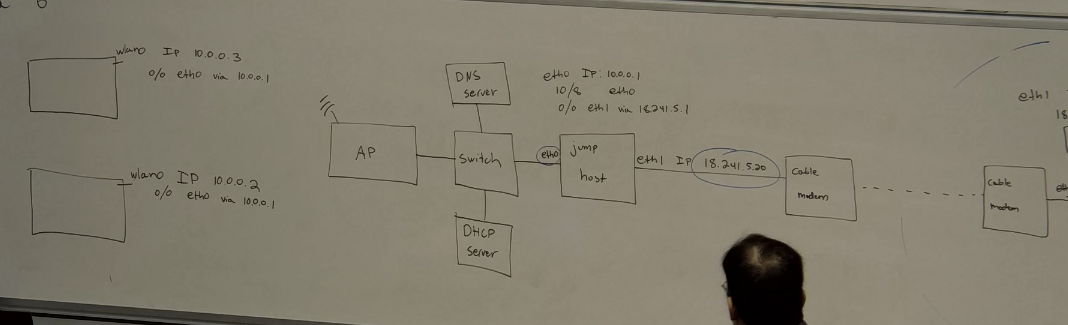 wlan0 IP 10.0.0.3
0/0 eth0 via 10.0.0.1
wlan0 IP 10.0.0.2
0/0 eth0 via 10.0.0.1
AP
DNS
server
switch
DHCP
server
eth0 IP: 10.0.0.1
10/8 eth0
0/0 eth1 via 18.241.5.1
eth0
jump
host
eth1 IP 18.241.5.20
Cable
modem
Cable
modem
eth1
18